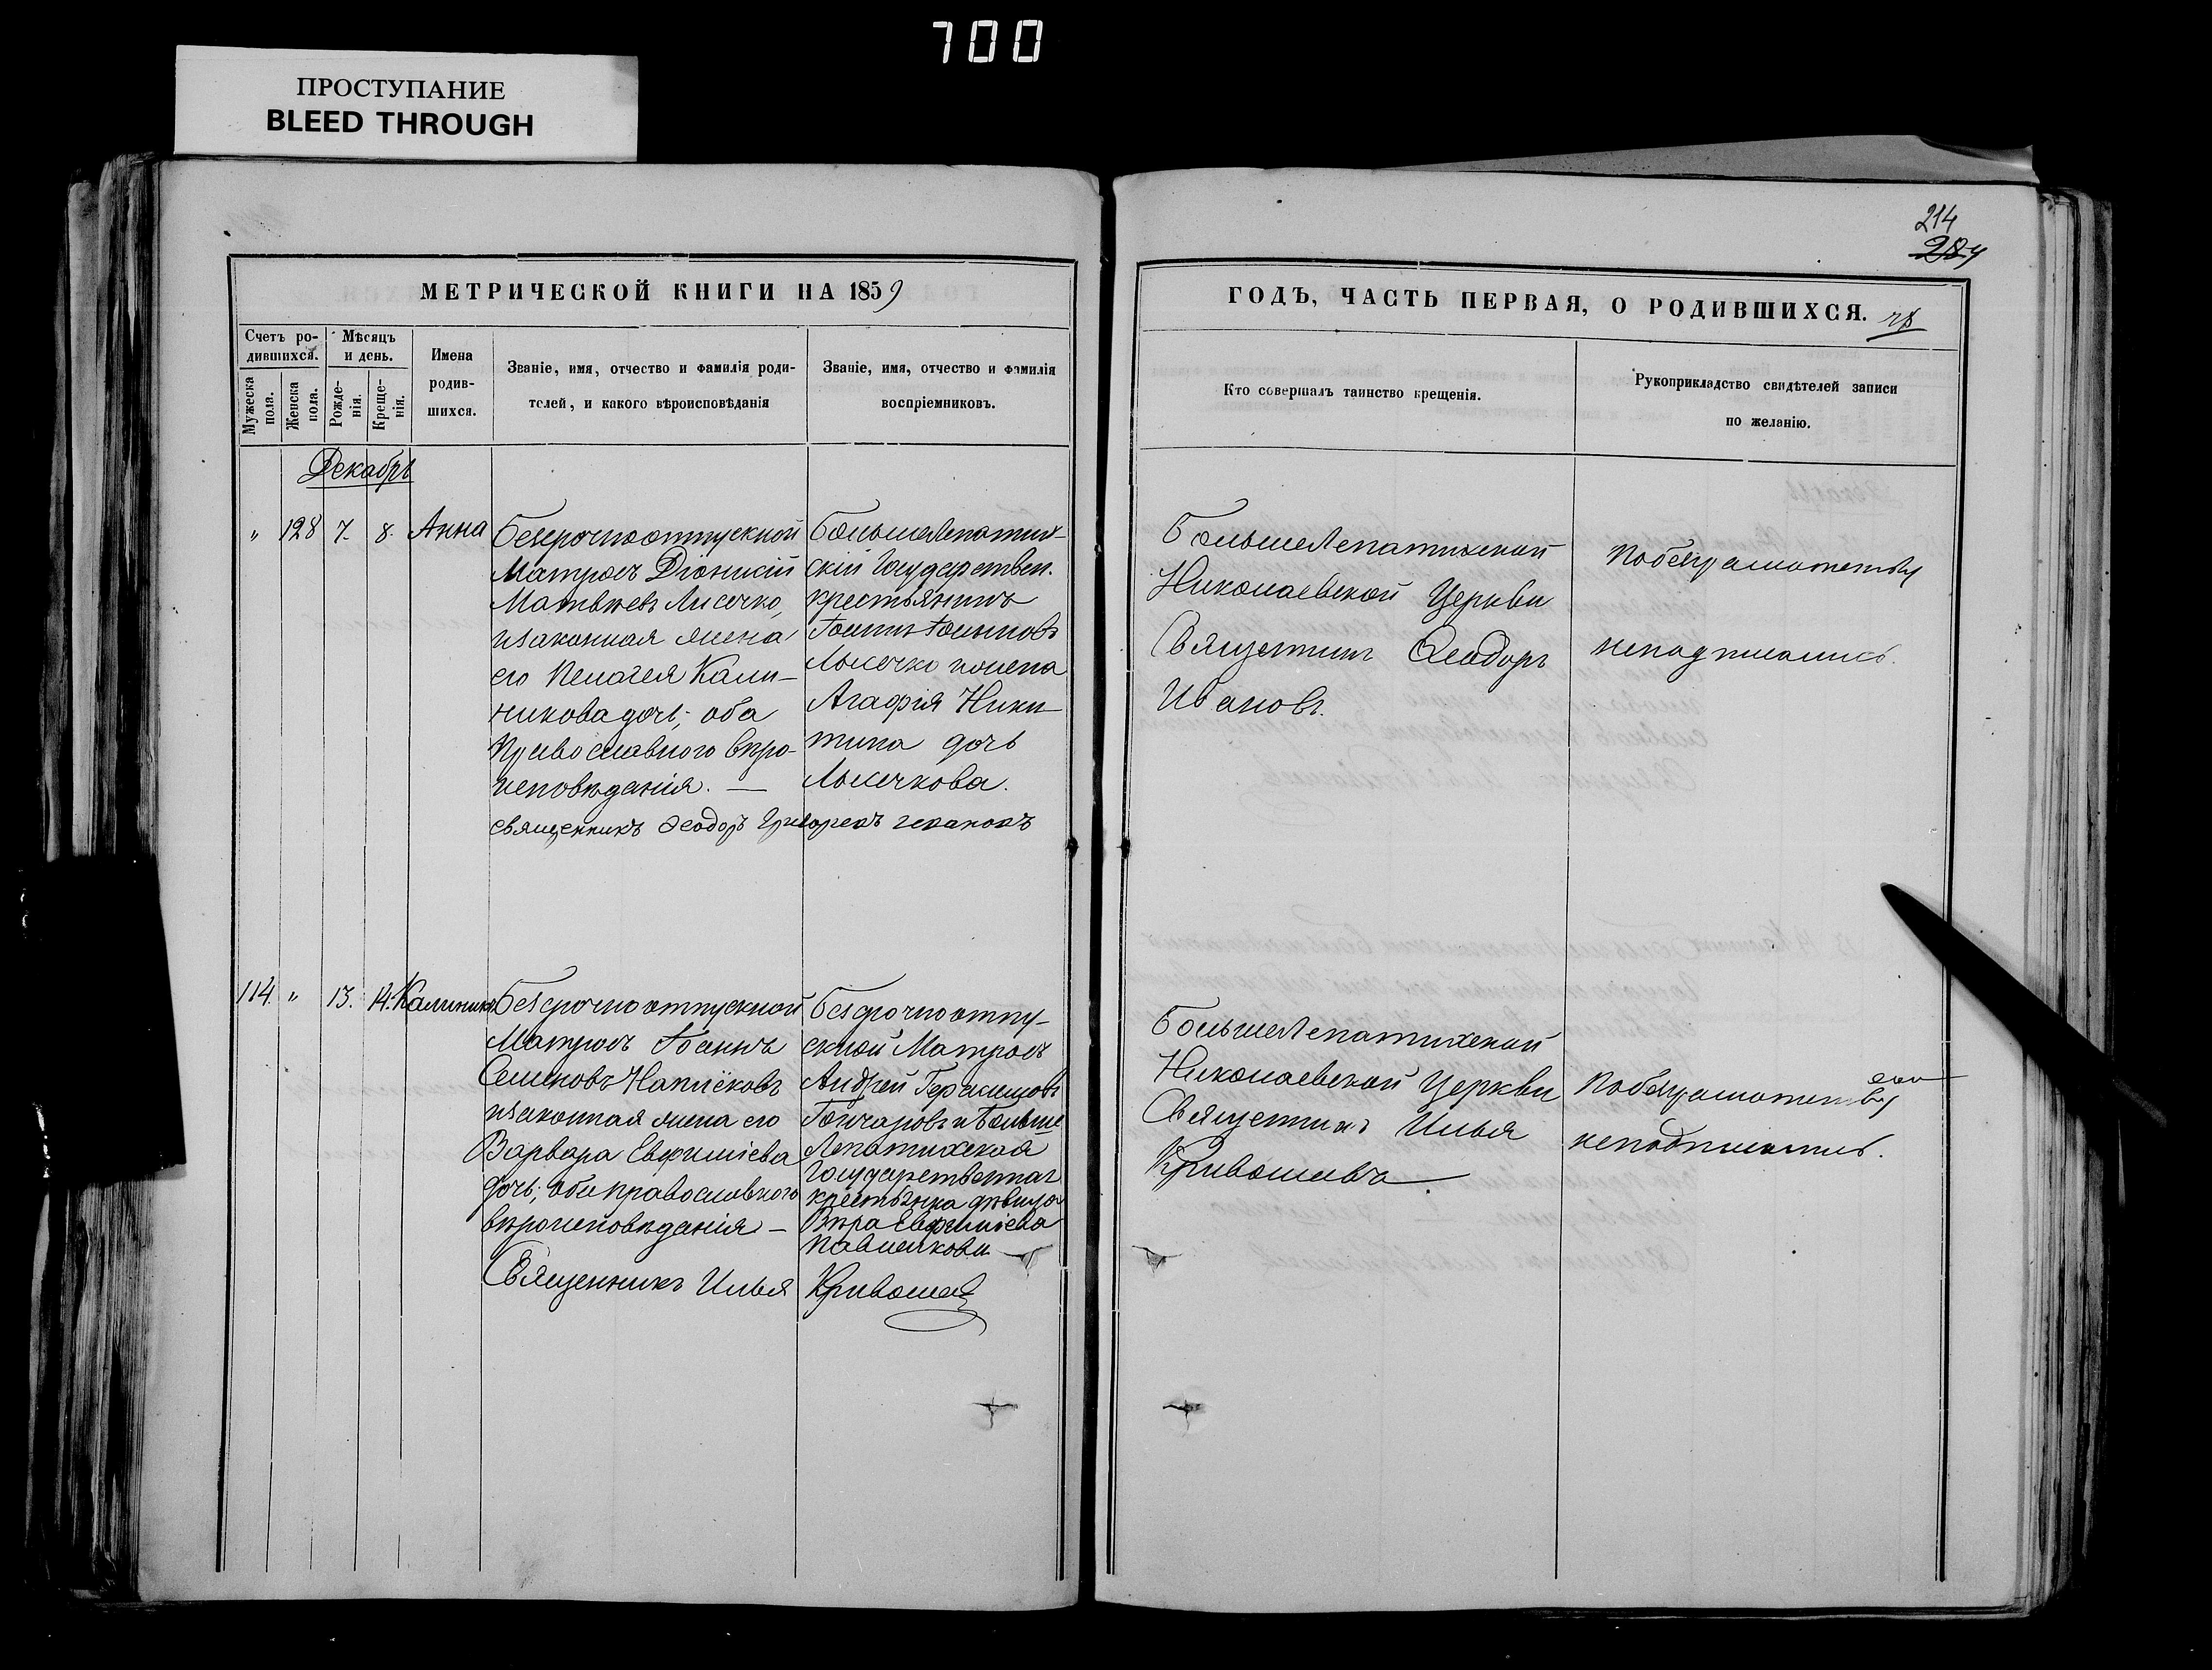 700
ПРОСТУПАНИЕ
BLEED THROUGH
214
МЕТРИЧЕСКОЙ КНИГИ НА 1859
ГОДЪ, ЧАСТЬ ПЕРВАЯ, О РОДИВШИХСЯ.
Счетъ ро-
дившихся.
Мужеска
пола.
Женска
пола.
Мѣсяцъ
и день.
Рожде-
нія.
Креще-
нія.
Имена
родив-
шихся.
Званіе, имя, отчество и фамилія роди-
телей, и какого вѣроисповѣданія
Званіе, имя, отчество и фамилія
воспріемниковъ.
Кто совершалъ таинство крещенія.
Рукоприкладство свидѣтелей записи
по желанію.
Декабрь
" 128 7. 8. Анна
Безсрочноотпускной
Матросъ Діонисій
Матвѣевъ Лисечко,
изаконная жена
его Пелагея Кали-
никова дочь; оба
Православнаго вѣро-
исповѣданія. —
БольшеЛепатих-
скій Государствен.
крестьянинъ
Лысечко ижена
Агафія Ники-
тина дочь
Лысечкова.
священникъ Ѳеодоръ
БольшеЛепатихской
Николаевской Церкви
Священникъ Ѳеодоръ
Ивановъ.
Побезграмотству
неподписались.
114. " 13. 14. Калиникъ
Безсрочноотпускной
Матросъ Іоаннъ
Семеновъ
изаконная жена его
Варвара Евфиміева
дочь; оба православного
вѣроисповѣданія —
Безсрочноотпу-
скной Матросъ
Андрей Герасимовъ
Гончаровъ и Больше
Лепатихская
Государственная
крестьянка дѣвица
Вѣра Евфиміева
Павленкова
Священникъ Илья Кривошея
БольшеЛепатихской
Николаевской Церкви
Священникъ Илья
Кривошея
Побезграмотству
неподписались.